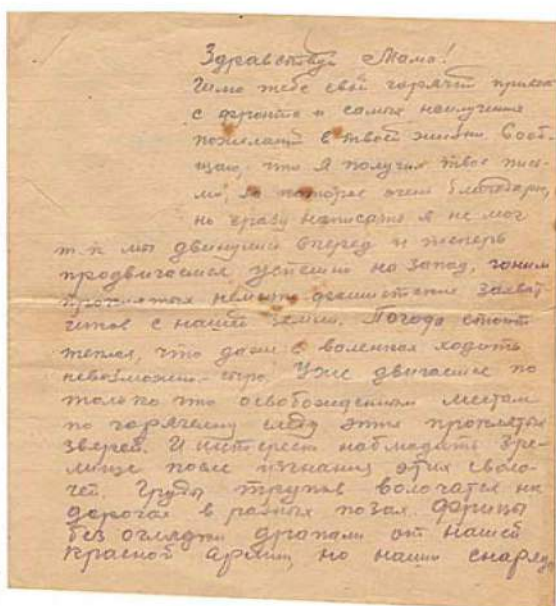 Здравствуй Мама!
Шлю тебе свой горячий привет
с фронта и самых наилучших
пожеланий в твоей жизни. Сооб-
щаю, что я получил твое пись-
мо, за которое очень благодарю,
но сразу написать я не мог
т.к мы двинулись вперед и теперь
продвигаемся успешно на запад, гоним
проклятых немецко фашистских захват
чиков с нашей земли. Погода стоит
теплая, что даже в валенках ходить
невозможно - сыро. Уже двигаемся по
только что освобожденным местам
по горячему следу этих проклятых
зверей. И интересно наблюдать зре-
лище после изгнания этих сволo-
чей. Груды трупов волочатся на
дорогах в разных позах. Фрицы
без оглядки драпали от нашей
Красной армии, но наши снаряды